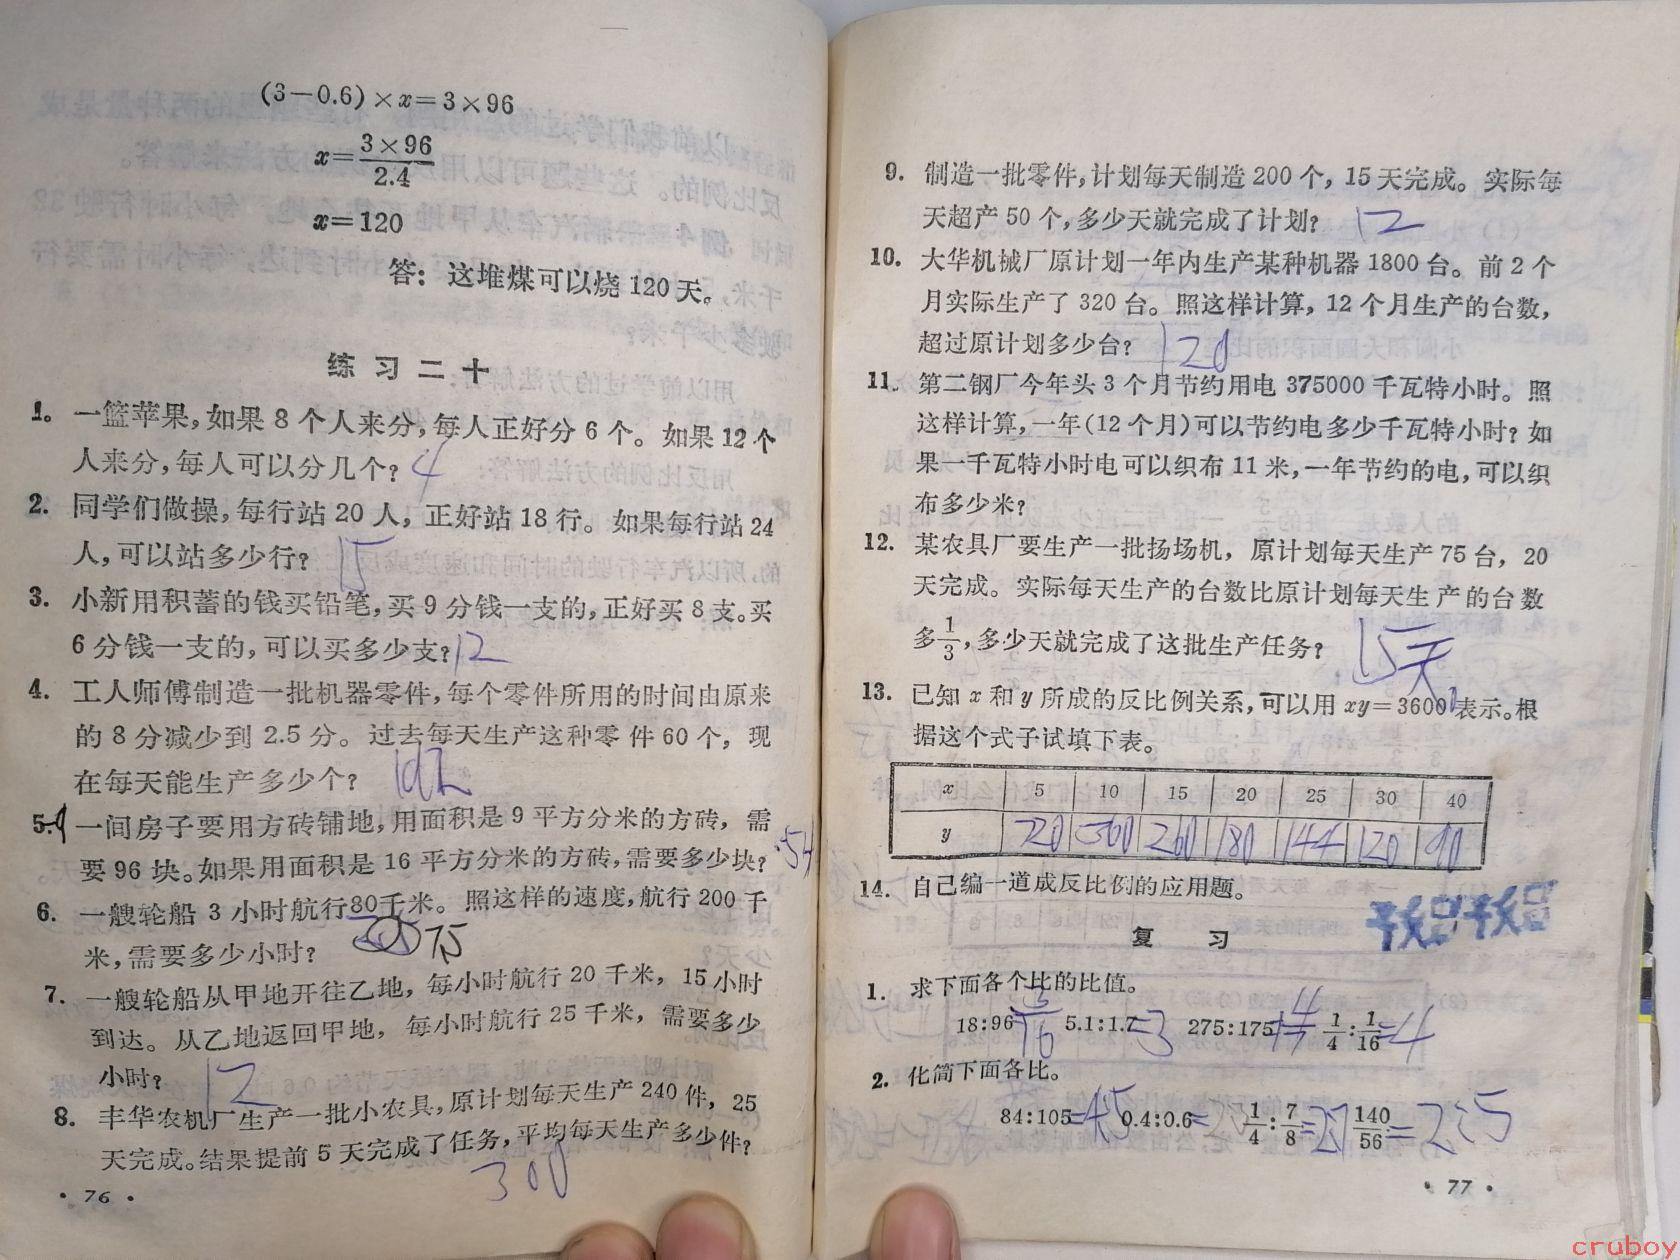 (3－0.6)×x＝3×96
x＝3×96/2.4
x＝120
答：这堆煤可以烧120天。
练习二十
1. 一篮苹果，如果8个人来分，每人正好分6个。如果12个
人来分，每人可以分几个？ 4
2. 同学们做操，每行站20人，正好站18行。如果每行站24
人，可以站多少行？ 15
3. 小新用积蓄的钱买铅笔，买9分钱一支的，正好买8支。买
6分钱一支的，可以买多少支？ 12
4. 工人师傅制造一批机器零件，每个零件所用的时间由原来
的8分减少到2.5分。过去每天生产这种零件60个，现
在每天能生产多少个？ 192
5. 一间房子要用方砖铺地，用面积是9平方分米的方砖，需
要96块。如果用面积是16平方分米的方砖，需要多少块？ 54
6. 一艘轮船3小时航行80千米。照这样的速度，航行200千
米，需要多少小时？ 7.5
7. 一艘轮船从甲地开往乙地，每小时航行20千米，15小时
到达。从乙地返回甲地，每小时航行25千米，需要多少
小时？ 12
8. 丰华农机厂生产一批小农具，原计划每天生产240件，25
天完成。结果提前5天完成了任务，平均每天生产多少件？
300
· 76 ·
9. 制造一批零件，计划每天制造200个，15天完成。实际每
天超产50个，多少天就完成了计划？ 12
10. 大华机械厂原计划一年内生产某种机器1800台。前2个
月实际生产了320台。照这样计算，12个月生产的台数，
超过原计划多少台？ 120
11. 第二钢厂今年头3个月节约用电375000千瓦特小时。照
这样计算，一年(12个月)可以节约电多少千瓦特小时？如
果一千瓦特小时电可以织布11米，一年节约的电，可以织
布多少米？
12. 某农具厂要生产一批扬场机，原计划每天生产75台，20
天完成。实际每天生产的台数比原计划每天生产的台数
多1/3，多少天就完成了这批生产任务？ 15天
13. 已知x和y所成的反比例关系，可以用xy＝3600表示。根
据这个式子试填下表。
x 5 10 15 20 25 30 40
y 720 360 260 180 144 120 90
14. 自己编一道成反比例的应用题。
复习
1. 求下面各个比的比值。
18:96 3/16 5.1:1.7=3 275:175 1/4:1/16=4
2. 化简下面各比。
84:105=4:5 0.4:0.6= 1/4:7/8=2:7 140/56=2:5
· 77 ·
cruboy